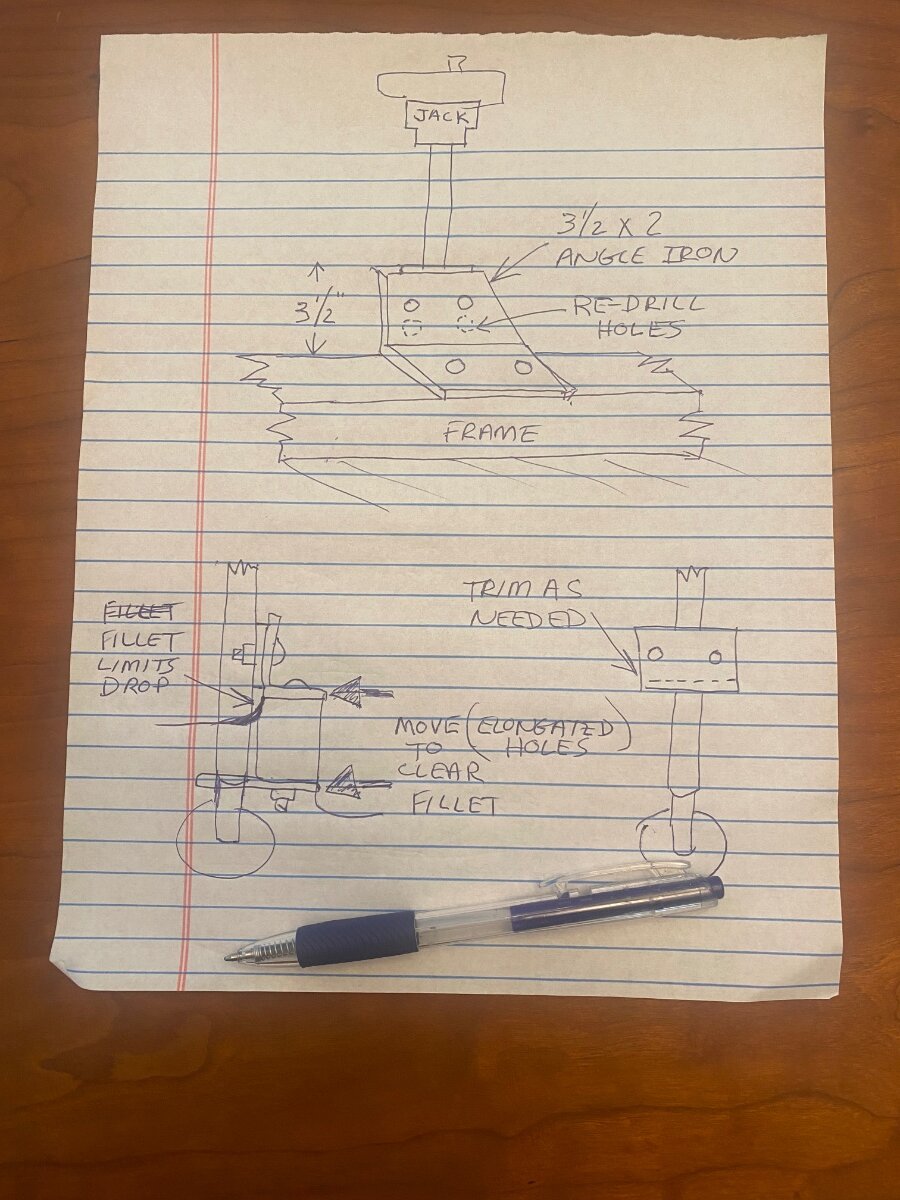 JACK
3 1/2 X 2
ANGLE IRON
3 1/2"
RE-DRILL
HOLES
FRAME
TRIM AS
NEEDED
FILLET
FILLET
LIMITS
DROP
MOVE (ELONGATED
TO HOLES)
CLEAR
FILLET